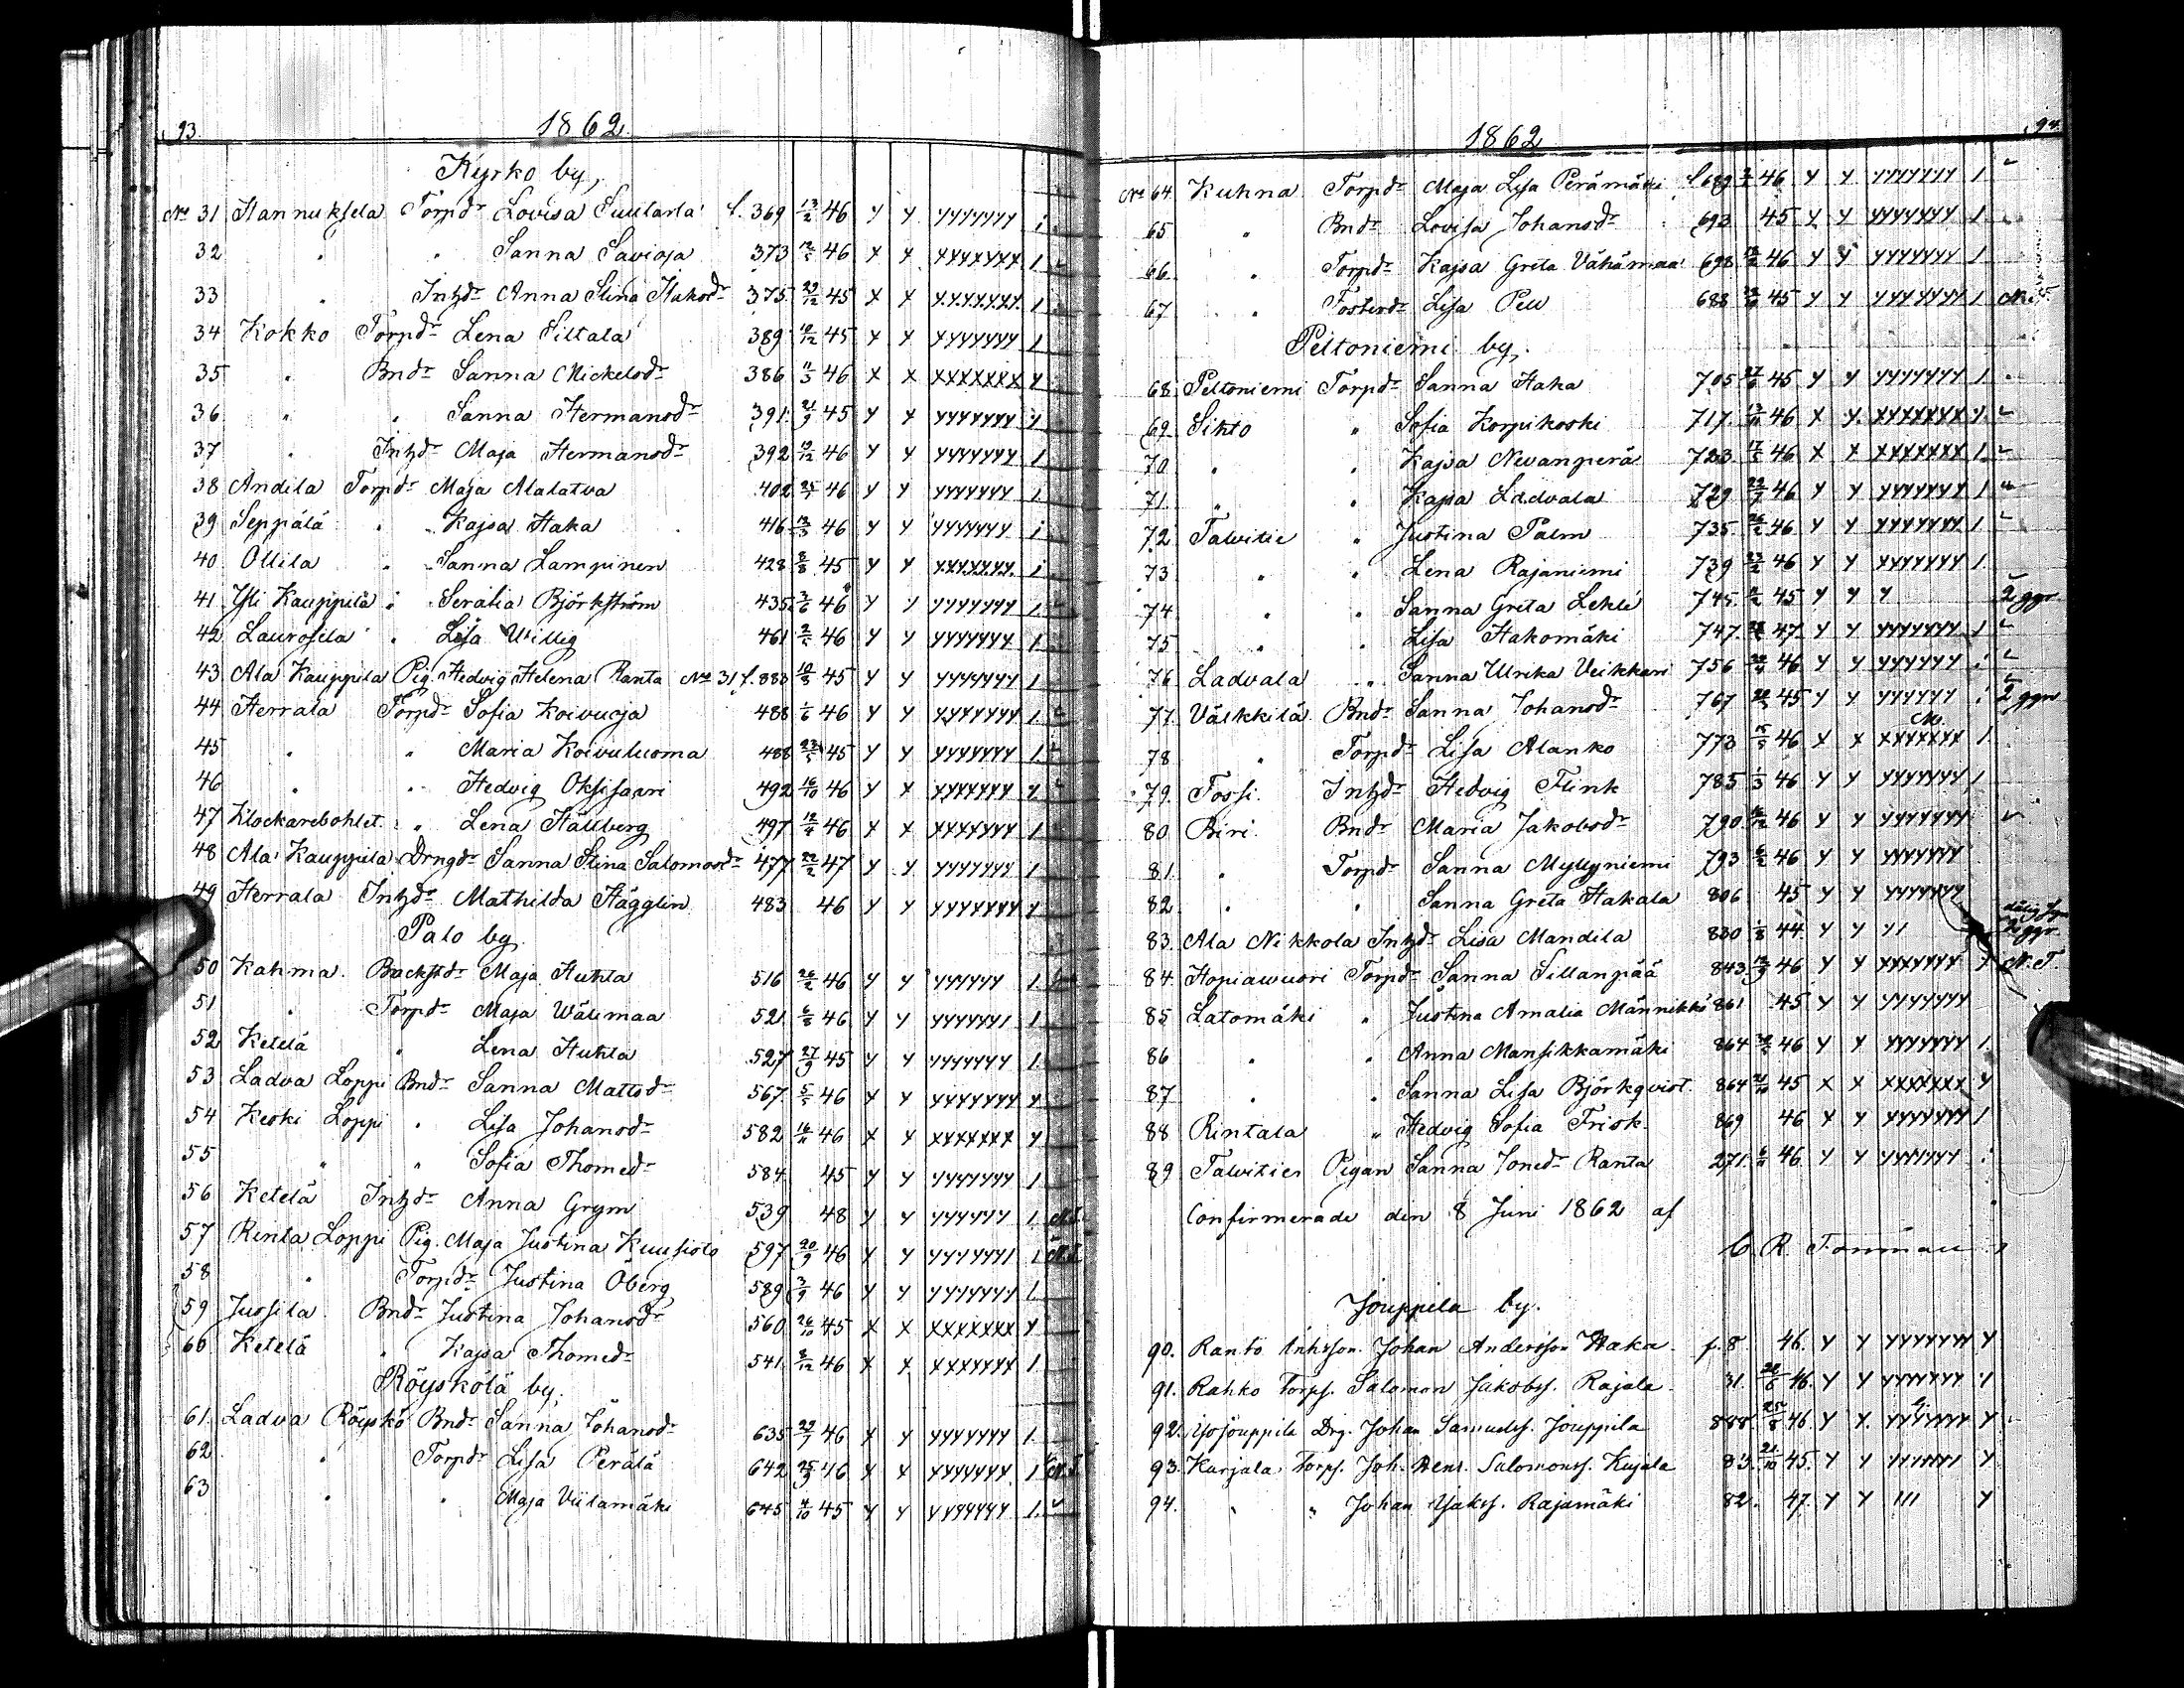 93.
1862
Kyrko by,
No 31 Hannuksela Torpdr Lovisa Luulasla f. 369 13/2 46 y y yyyyyyy 1
32 " " Sanna Savioja 373 12/5 46 x x xxxxxxx 1
33 " Inhdr Anna Stina Isaksdr 375 29/12 45 x x xxxxxxx 1
34 Kokko Torpdr Lena Siltala 389 10/12 45 x x xyyyyyy 1
35 " Bndr Sanna Mickelsdr 386 11/3 46 x x xxxxxxx y
36 " " Sanna Hermansdr 391 21/9 45 y x yyyyyyy y
37 " Inhdr Maja Hermansdr 392 19/12 46 y y yyyyyyy 1
38 Andila Torpdr Maja Alalatva 402 25/7 46 y y yyyyyyy 1
39 Seppälä " Kajsa Haka 416 13/3 46 y y yyyyyyy 1
40 Ollila " Sanna Lampinen 428 8/8 45 y y xxxxxxx 1
41 Yli Kauppila " Serafia Björkström 435 3/6 46 y y yyyyyyy 1
42 Laurosela " Lisa Willig 461 2/5 46 y y yyyyyyy 1
43 Ala Kauppila Pig. Hedvig Helena Ranta No 31 f. 883 10/8 45 y y yyyyyyy 1
44 Herrala Torpdr Sofia Koivuoja 488 1/6 46 y y yyyyyyy 1
45 " " Maria Koivuluoma 488 23/5 45 y y yyyyyyy 1
46 " " Hedvig Oksisaari 492 16/10 46 y x xxxxxxx y
47 Klockarebohlet. " Lena Hällberg 497 12/4 46 x x xxxxxxx 1
48 Ala Kauppila Drngdr Sanna Stina Salomosdr 477 22/2 47 y y yyyyyyy 1
49 Herrala Inhdr Mathilda Hägglin 483 46 y y yyyyyyy y
Palo by
50 Kahma. Backstdr Maja Huhta 516 26/2 46 y y yyyyyy 1
51 " Torpdr Maja Wälimaa 521 6/8 46 y y yyyyyyy 1
52 Ketelä " Lena Huhta 527 27/9 45 y y yyyyyyy 1
53 Ladva Loppi Bndr Sanna Mattsdr 567 5/5 46 y y yyyyyyy y
54 Keski Loppi " Lisa Johansdr 582 16/11 46 x x xxxxxxx y
55 " " Sofia Thomedr 584 45 y y yyyyyyy 1
56 Ketelä Inhdr Anna Grym 539 48 y y yyyyyy 1
57 Rinta Loppi Pig. Maja Justina Kuusisto 597 20/9 46 y y yyyyyyy 1
58 " Torpdr Justina Öberg 589 3/9 46 y y yyyyyyy 1
59 Jussila Bndr Justina Johansdr 560 26/10 45 x x xxxxxxx y
60 Ketelä " Kajsa Thomedr 541 8/12 46 x x xxxxxxx 1
Röyskölä by.
61 Ladva Röyskö Bndr Sanna Johansdr 635 29/7 46 y y yyyyyyy 1
62 " Torpdr Lisa Perälä 642 25/9 46 x x xxxxxxx 1
63 " " Maja Viilamäki 645 4/10 45 y y yyyyyyy 1
94.
1862
No 64 Kuhna Torpdr Maja Lisa Perämäki f 689 46 y y yyyyyyy 1
65 " Bndr Lovisa Johansdr 693 45 y y yyyyyyy 1
66 " Torpdr Kajsa Greta Vähämaa 698 46 y y yyyyyyy 1
67 " Fosterdr Lisa Pell 688 45 y y yyyyyyy 1
Peltoniemi by.
68 Peltoniemi Torpdr Sanna Haka 705 27/6 45 y y yyyyyyy 1
69 Sikto " Sofia Korpikoski 717 46 x y xxxxxxx y
70 " " Kajsa Nevanperä 723 17/5 46 x x xxxxxxx 1
71 " " Kajsa Ladvala 729 29/7 46 y y yyyyyyy 1
72 Talvitie " Justina Palm 735 26/2 46 y y yyyyyyy 1
73 " " Lena Rajaniemi 739 23/2 46 y y yyyyyyy 1
74 " " Sanna Greta Lehli 745 45 y y y 2 ggr
75 " " Lisa Hakomäki 747 47 y y yyyyyyy 1
76 Ladvala " Sanna Ulrika Veikkari 756 46 y y yyyyyy 1
77 Välkkilä Bndr Sanna Johansdr 767 45 y y yyyyyy 1 2 ggr
78 " Torpdr Lisa Alanko 773 46 x x xxxxxxx 1
79 Fossi. Inhdr Hedvig Flink 785 1/3 46 y y yyyyyyy 1
80 Biri. Bndr Maria Jakobsdr 790 16/12 46 y y yyyyyyy
81 " Torpdr Sanna Myllyniemi 793 6/2 46 y y yyyyyyy
82 " " Sanna Greta Hakala 806 45 y y yyyyyyy
83. Ala Nikkola Inhdr Lisa Mandila 830 1/8 44 y y yy 2 ggr.
84 Hopiavuori Torpdr Sanna Sillanpää 843 46 y y xxxxxxx 1 N.T.
85 Latomäki " Justina Amalia Männikkö 861 45 y y yyyyyyy
86 " " Anna Mansikkamäki 864 46 y x yyyyyyy 1
87 " " Sanna Lisa Björkqvist 864 45 x x xxxxxxx y
88 Rintala " Hedvig Sofia Frisk 869 46 x y yyyyyyy 1
89 Talvitien Pigan Sanna Jonedr Ranta 271 46 y y yyyyyyy
Confirmerade den 8 Juni 1862 af
C. R. Forsman
Jouppila by.
90. Ranto Inhsson Johan Andersson Haka f. 8 46. y y yyyyyyy y
91. Rahko Torps. Salomon Jakobss. Rajala. 31 46. y y yyyyyyy 1
92. Yojouppila Drg. Johan Samuelss. Jouppila 888 25/8 46 y y. yyyyyyy y
93. Karjala Torps. Joh. Henr. Salomonss. Kujala 83 21/10 45. y y yyyyyyy y
94. " " Johan Jakss. Rajamäki 82 47. y y 111 y